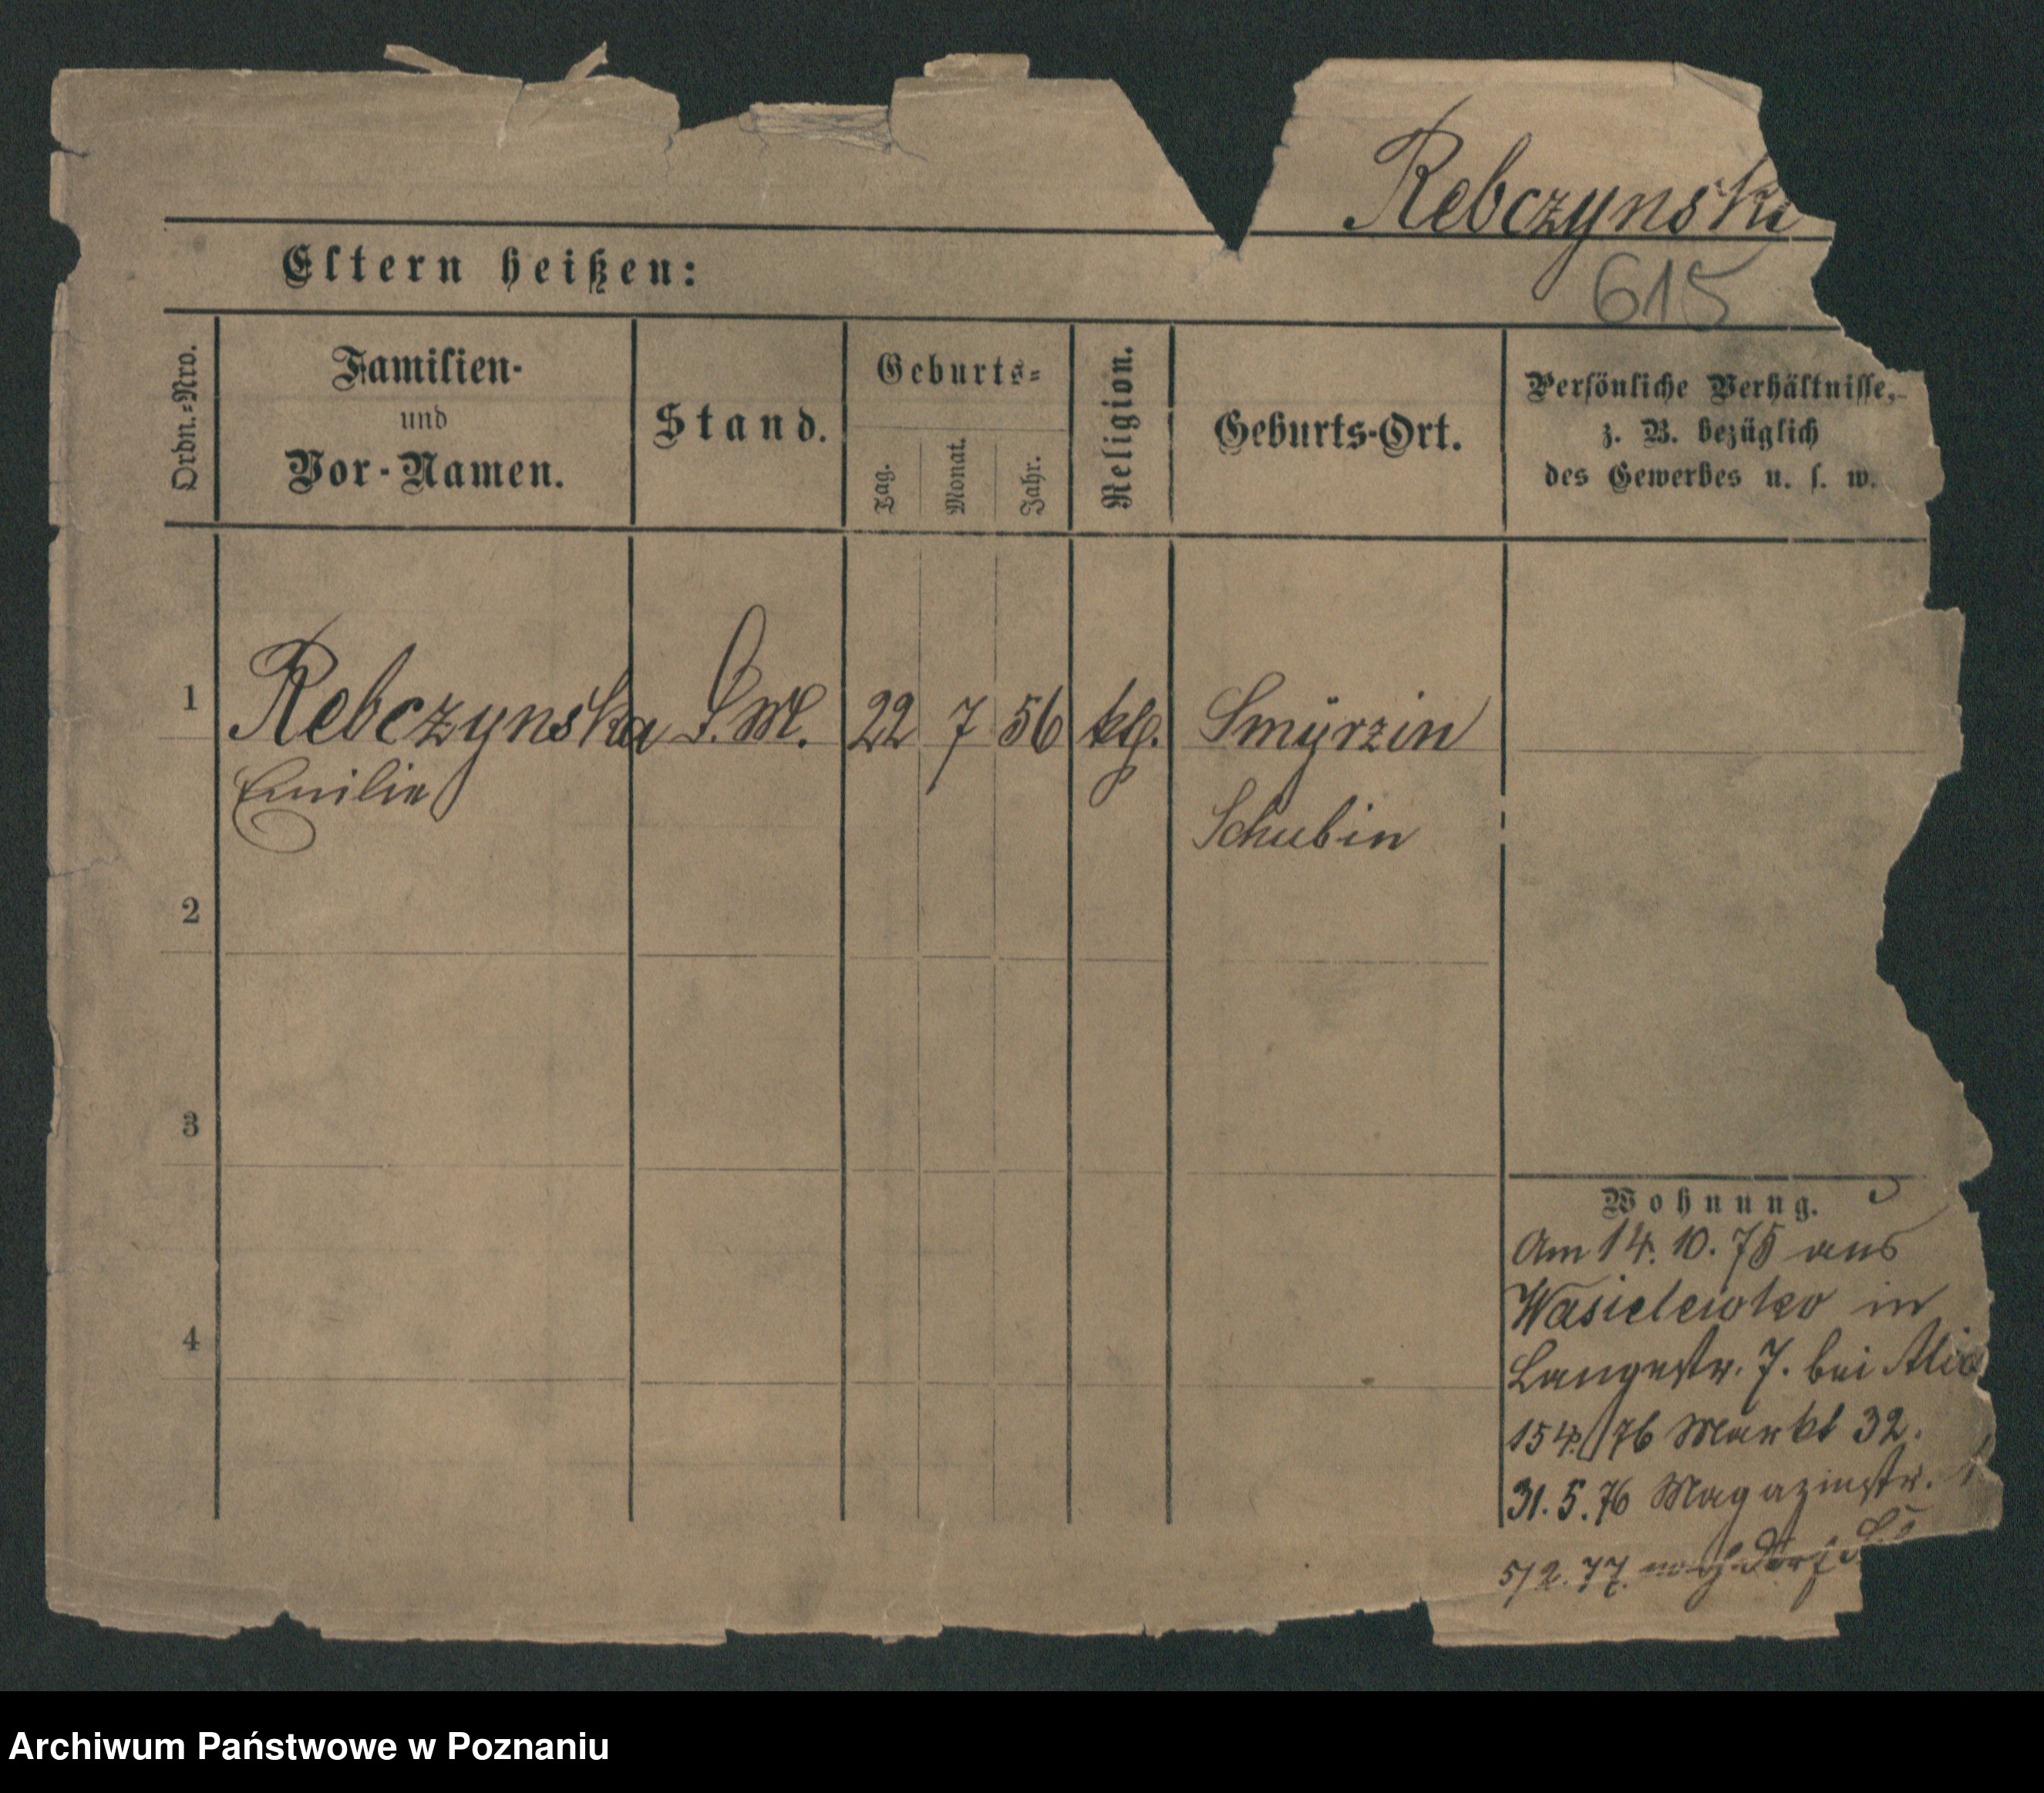 Rebczynski
615
Eltern heißen:
Ordn.=Nro.
Familien-
und
Vor-Namen.
Stand.
Geburts=
Tag.
Monat.
Jahr.
Religion.
Geburts-Ort.
Persönliche Verhältnisse,
z. B. bezüglich
des Gewerbes u. s. w.
1 Rebczynska D. M. 22 7 56 kth. Smyrzin
Emilie
Schubin
2
3
4
Wohnung.
Am 14. 10. 75 aus
in
Langestr. 7. bei
15 4./76 Markt 32.
31. 5. 76 Magazinstr.
5/2. 77. nach
Archiwum Państwowe w Poznaniu